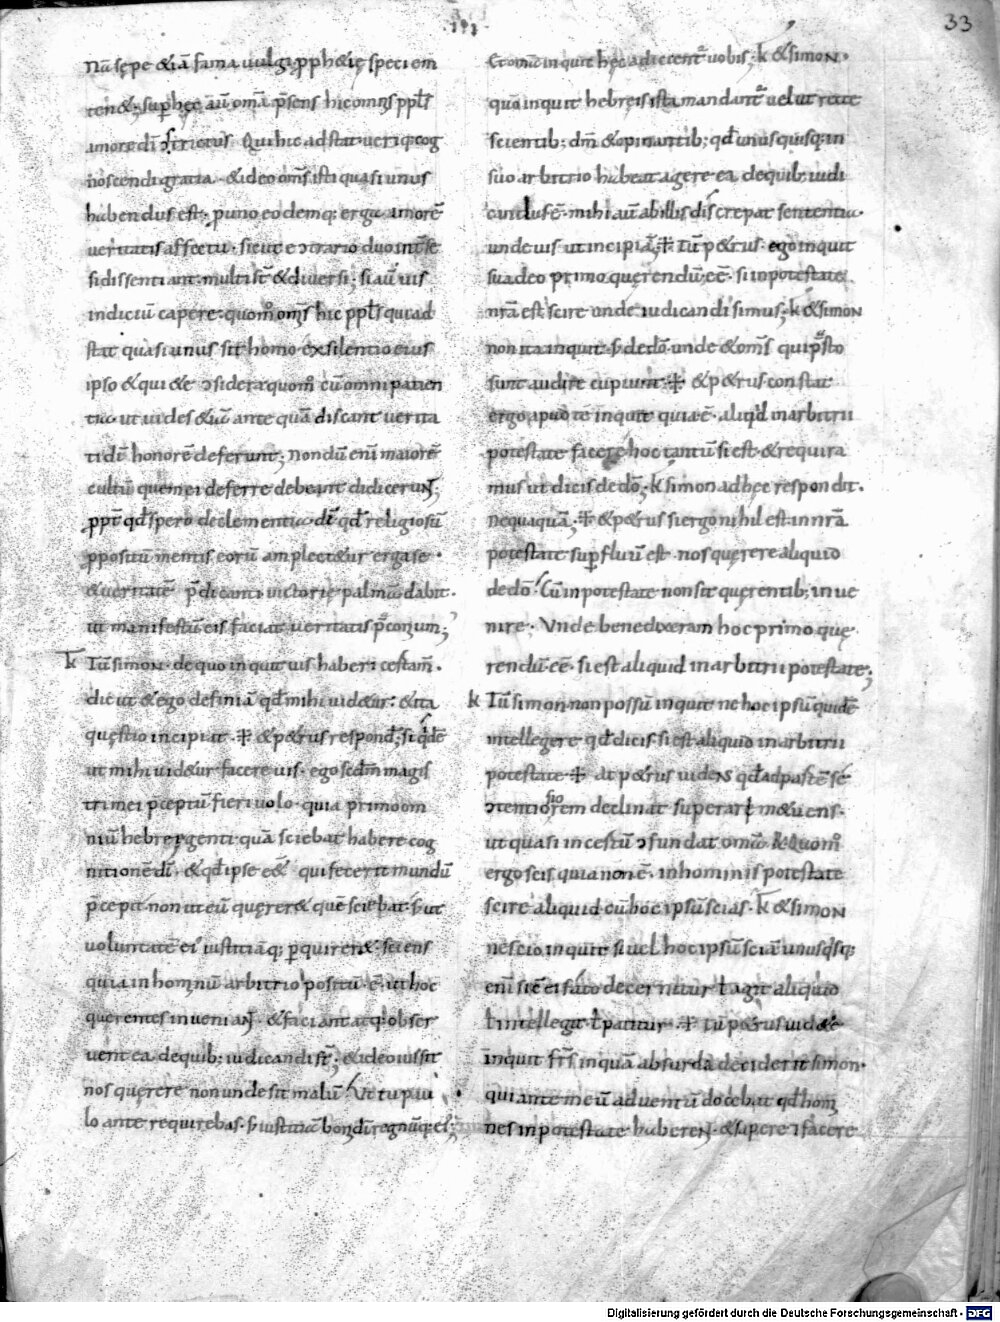 ·III·
33
Nā sępe &iā fama uulgi ꝓph&ię speciem
ten&; sup hęc aū omā p̄sens hic omīs ppl̄s
amore dī ɔstrictus. Qui hic adstat ueri cog
noscendi gratia. &ideo om̄s isti quasi unus
habendus est. p uno eodemq; erga amorē
ueritatis affectu. sicut econtrario duo int̄ se
si dissentiant. multi st̄ &diuersi; si aū uis
indiciū capere. quom̊ om̄s hic ppl̄s qui ad
stat quasi unus sit homo ex silentio eius
ipso & qui&e ɔsidera quom̊ cū omni patien
tia ut uides &iā ante quā discant uerita
tē dī honorē deferunt; nondū enī maiorē
cultū quem ei deferre debeant didicerunt;
ppt̄ qd̄ spero de clementia dī qd̄ religiosū
ppositū mentis eorū amplect&ur erga se.
&ueritatē p̄dicanti uictorię palmā dabit.
ut manifestū eis faciat ueritatis p̄conum;
k Tū simon. de quo inquit uis haberi cestam̄.
dic ut &ego definiā qd̄ mihi uid&ur. &ita
quęstio incipiat. ⁜ &p&rus respond̄; si qdē
ut mihi uid&ur facere uis. ego scdm̄ magis
tri mei p̄ceptū fieri uolo. quia primo om
niū hebreę genti quā sciebat habere cog
nitionē dī. &qd̄ ipse ē& qui fecerit mundū
p̄cepit non ut eū quęrer& quē sciebat. s; ut
uoluntatē ei iustitiāq; pquiren&. sciens
quia in hominū arbitrio positū ē. ut hoc
querentes inueniant. &faciant atq; obser
uent ea. de quib; iudicandi st̄; &ideo iussit
nos quęrere non unde sit malū. Ut tu pau
lo ante requirebas. s; iustitiā boni dī regnūq; ei;
Et omā inquit hęc adicient̄ uobis; k &simon.
quia inquit hebreis ista mandant̄ uelut recte
scientib; dm̄ &opinantib; qd̄ unusquisq; in
suo arbitrio habeat agere ea de quib; iudi
candus ē. mihi aū ab illis discrepat sententia.
unde uis ut incipiā; ⁜ tū p&rus. ego inquit
suadeo primo quęrendū ē&. si in potestate
nr̄a est scire unde iudicandi simus; k &simon
non ita inquit. s; de dō. unde &om̄s qui p̄sto
sunt audire cupiunt. ⁜ &p&rus. constat
ergo apud te inquit quia ē. aliqd in arbitrii
potestate facere hoc tantū si est. &requira
mus ut dicis de dō; k simon ad hęc respondit.
nequaquā; ⁜ &p&rus si ergo nihil est in nr̄a
potestate supfluū est. nos quęrere aliquid
de dō. Cū in potestate non sit quęrentib; inue
nire. Unde bene dixeram hoc primo quę
rendū ē&. si est aliquid in arbitrii potestate;
k Tū simon. non possū inquit ne hoc ipsū quidē
intellegere qd̄ dicis. si est aliquid in arbitrii
potestate ⁜ at p&rus uidens qd̄ ad pastē se
ɔtentiorem declinat superari m&uens.
ut quasi incestū ɔfundat omā. k Quom̊
ergo scis quia non ē. in hominis potestate
scire aliquid cū hoc ipsū scias. k &simon
nescio inquit si uel hoc ipsū sciā. unusqsq;
enī sic ei fato decernitur ł agit aliquid
ł intellegit. ł patitur. ⁜ tū p&rus uid&e
inquit frs̄ in quā absurda deciderit simon.
qui ante meū aduentū docebat qd̄ homi
nes in potestate haberent. &sapere ɔfacere
Digitalisierung gefördert durch die Deutsche Forschungsgemeinschaft - DFG